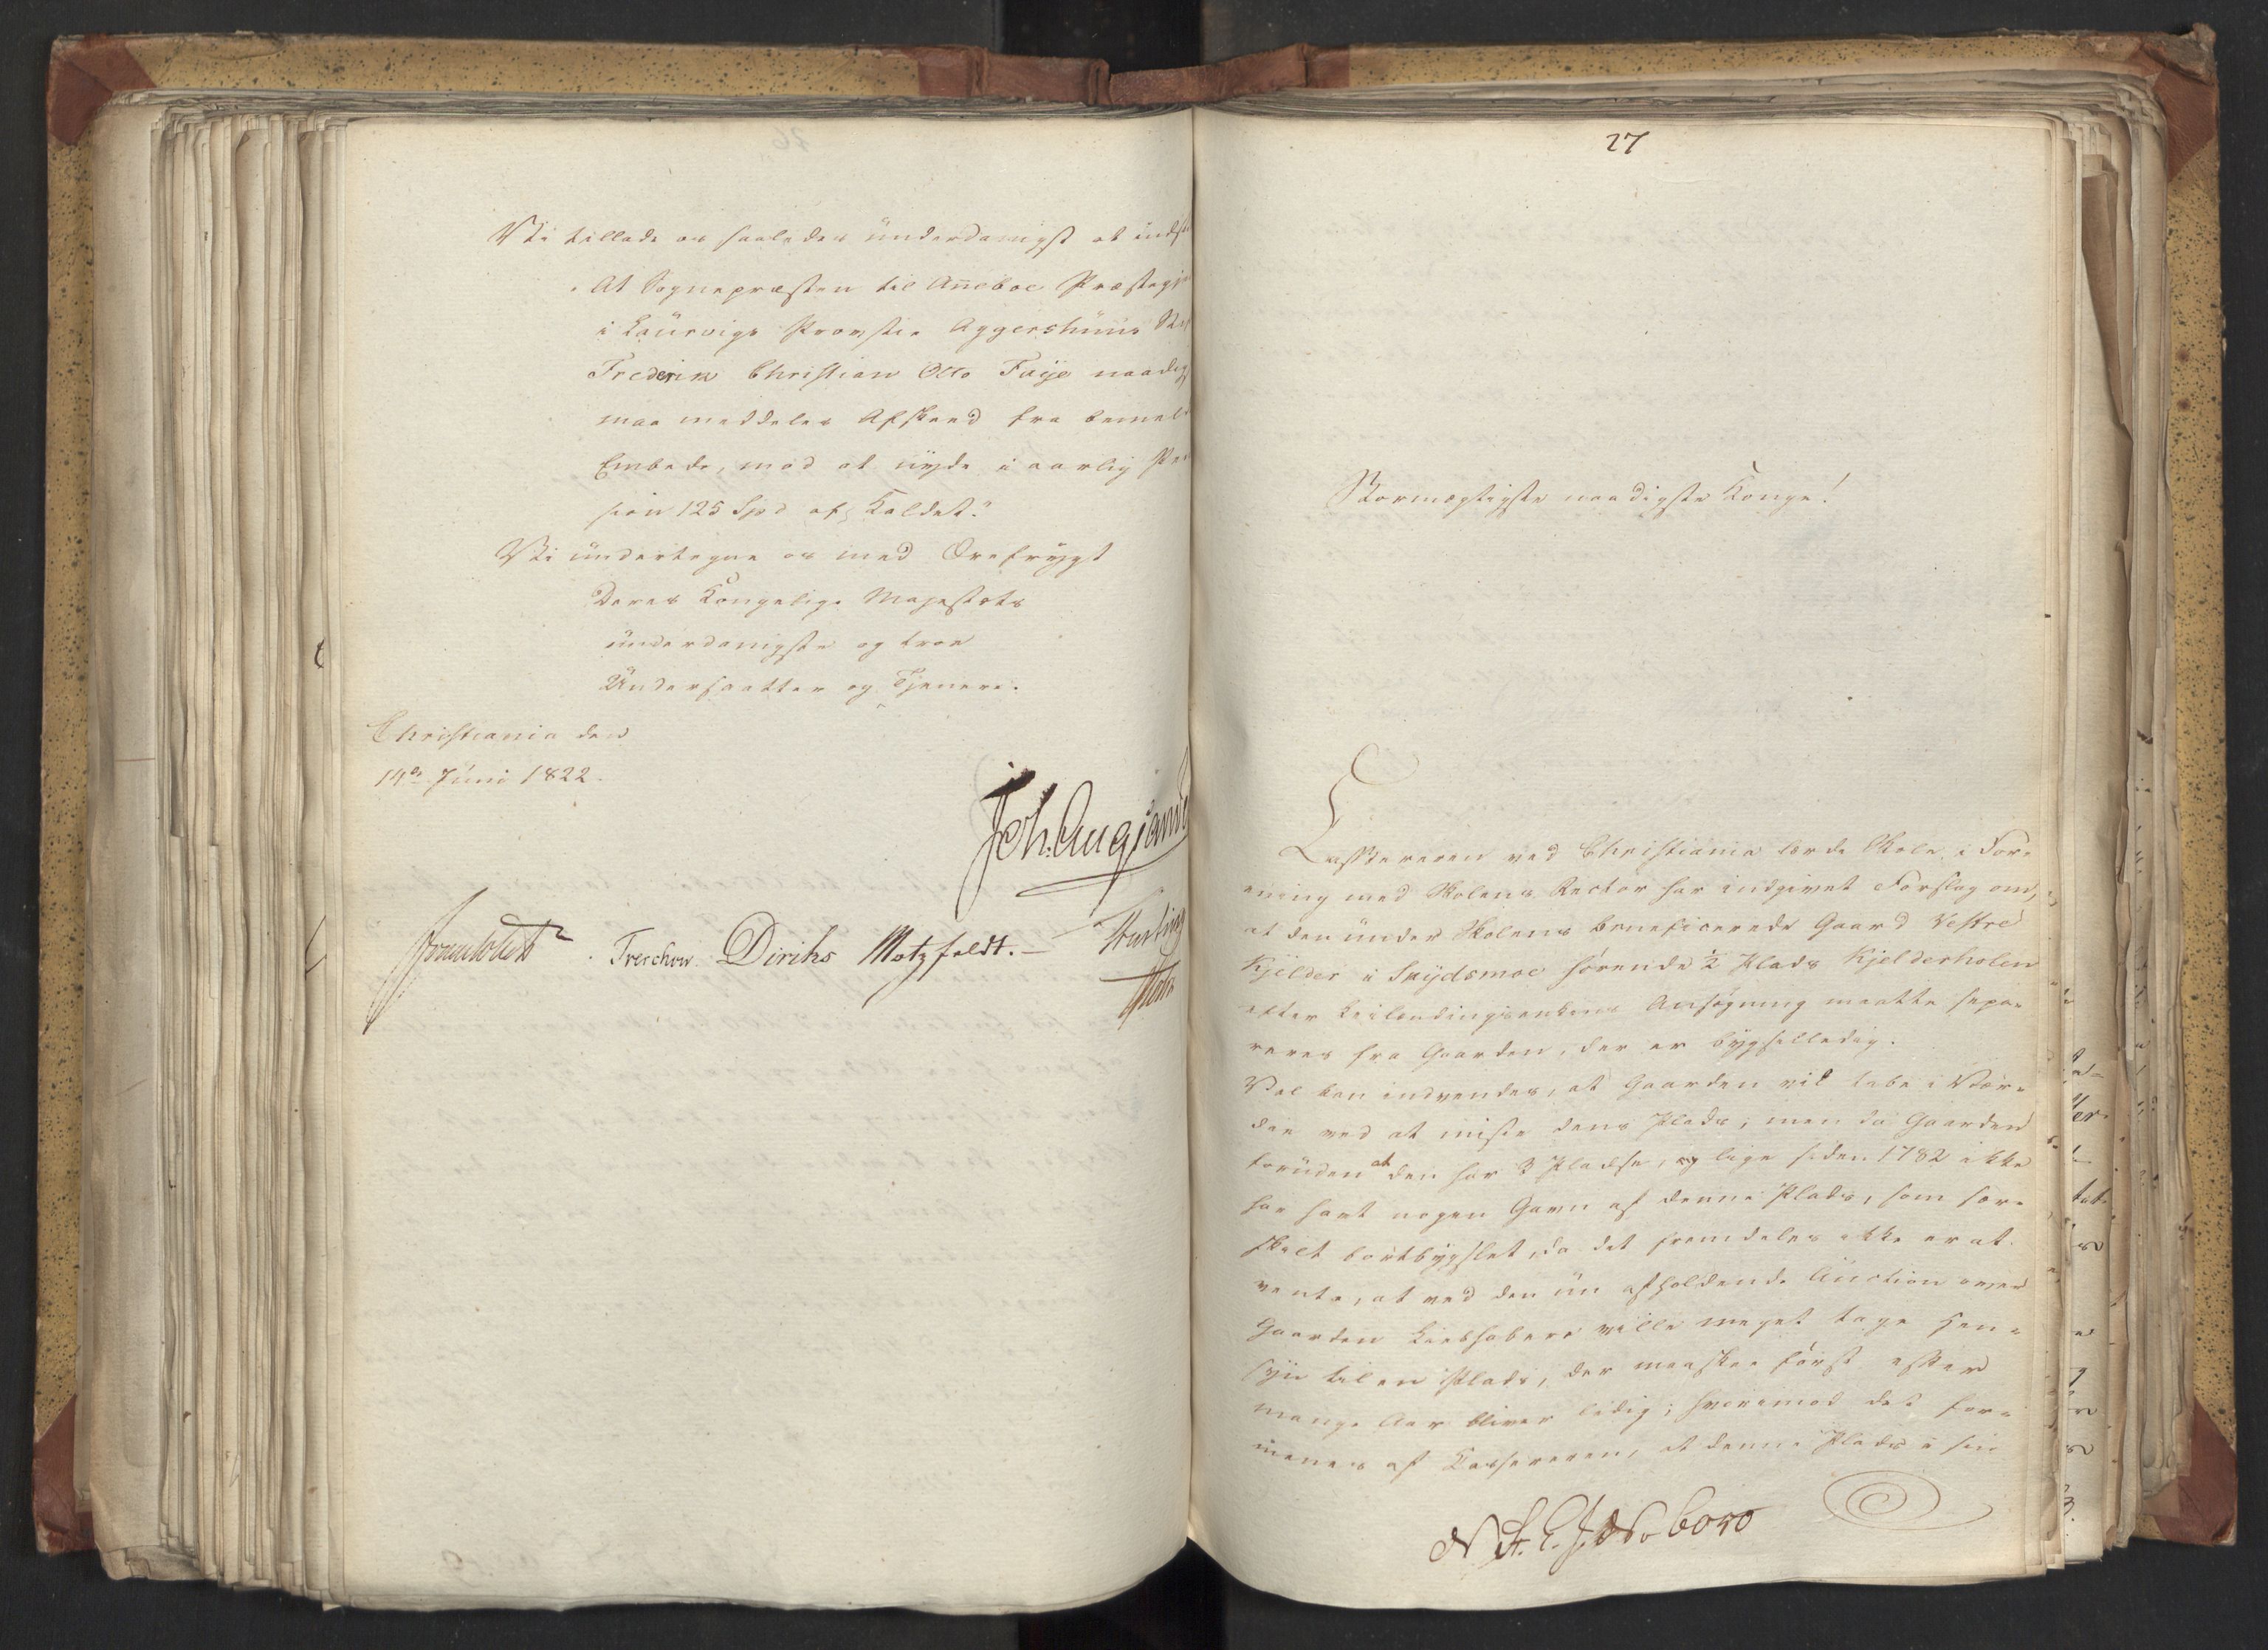 Vi tillade os saaledes underdanigst at indst
"At Sognepræsten til Anneboe Præstegje
i Laurvigs Provstie Aggershuus Sti
Frederik Christian Otto Faye naadig
maa meddeles Afskeed fra bemel
Embede, mod at nyde i aarlig Pen
sion 125 Spd af Kaldet."
Vi undertegne os med Ærefrygt
Deres Kongelige Majestæts
underdanigste og troe
Undersaatter og Tjenere.
Christiania den
14de Juni 1822.
Joh. Aug Sand
Treschow. Diriks Motzfeldt.
27
Stormægtigste naadigste Konge!
Kassereren ved Christiania lærde Skole i For-
ening med Skolens Rector har indgivet Forslag om,
at den under Skolens beneficerede Gaard Vestre
Kjelder i Snydsmoe hørende ½ Plads Kjelderholen
efter Ansøgning maatte sepa-
reres fra Gaarden, der er bygselledig.
Vel kan indvendes, at Gaarden vil tabe i Vær-
die ved at miste dens Plads; men da Gaarden
foruden at den har 3 Pladse, og lige siden 1782 ikke
har havt nogen Gavn af denne Plads, som sær-
skilt bortbygslet, da det fremdeles ikke er at
vente, at ved den nu afholdende Auction over
Gaarden Liebhabere ville meget tage Hen-
syn til en Plads, der maaskee først efter
mange Aar bliver ledig; hvorimod det for-
menes af Kassereren, at denne Plads i sin